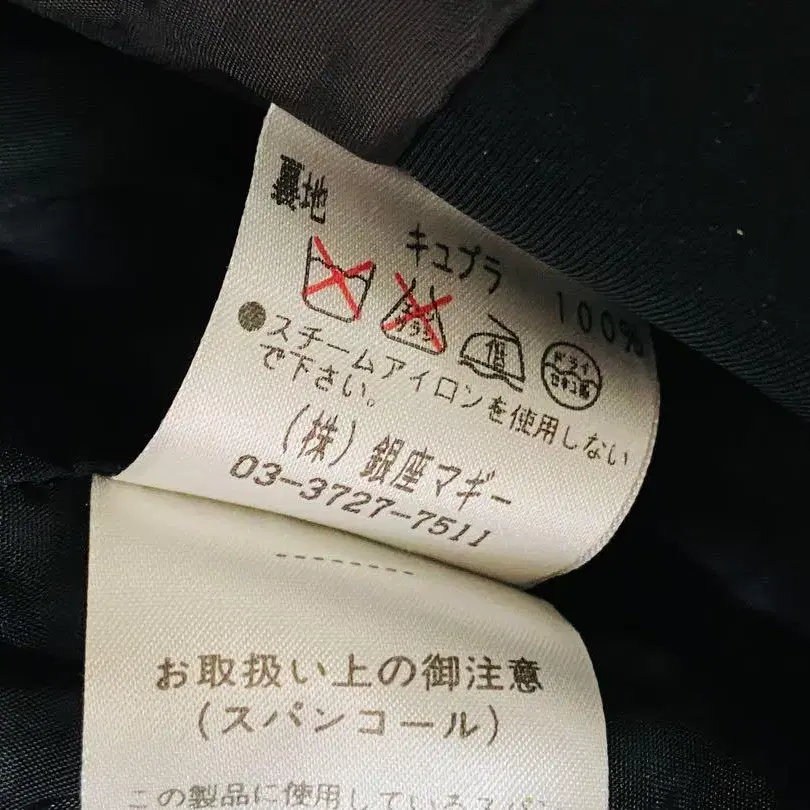 裏地
キュプラ 100%
エンソ サラシ 低 ドライ セキユ系
●スチームアイロンを使用しない
で下さい。
(株)銀座マギー
03-3727-7511
お取扱い上の御注意
(スパンコール)
この製品に使用しているスパン